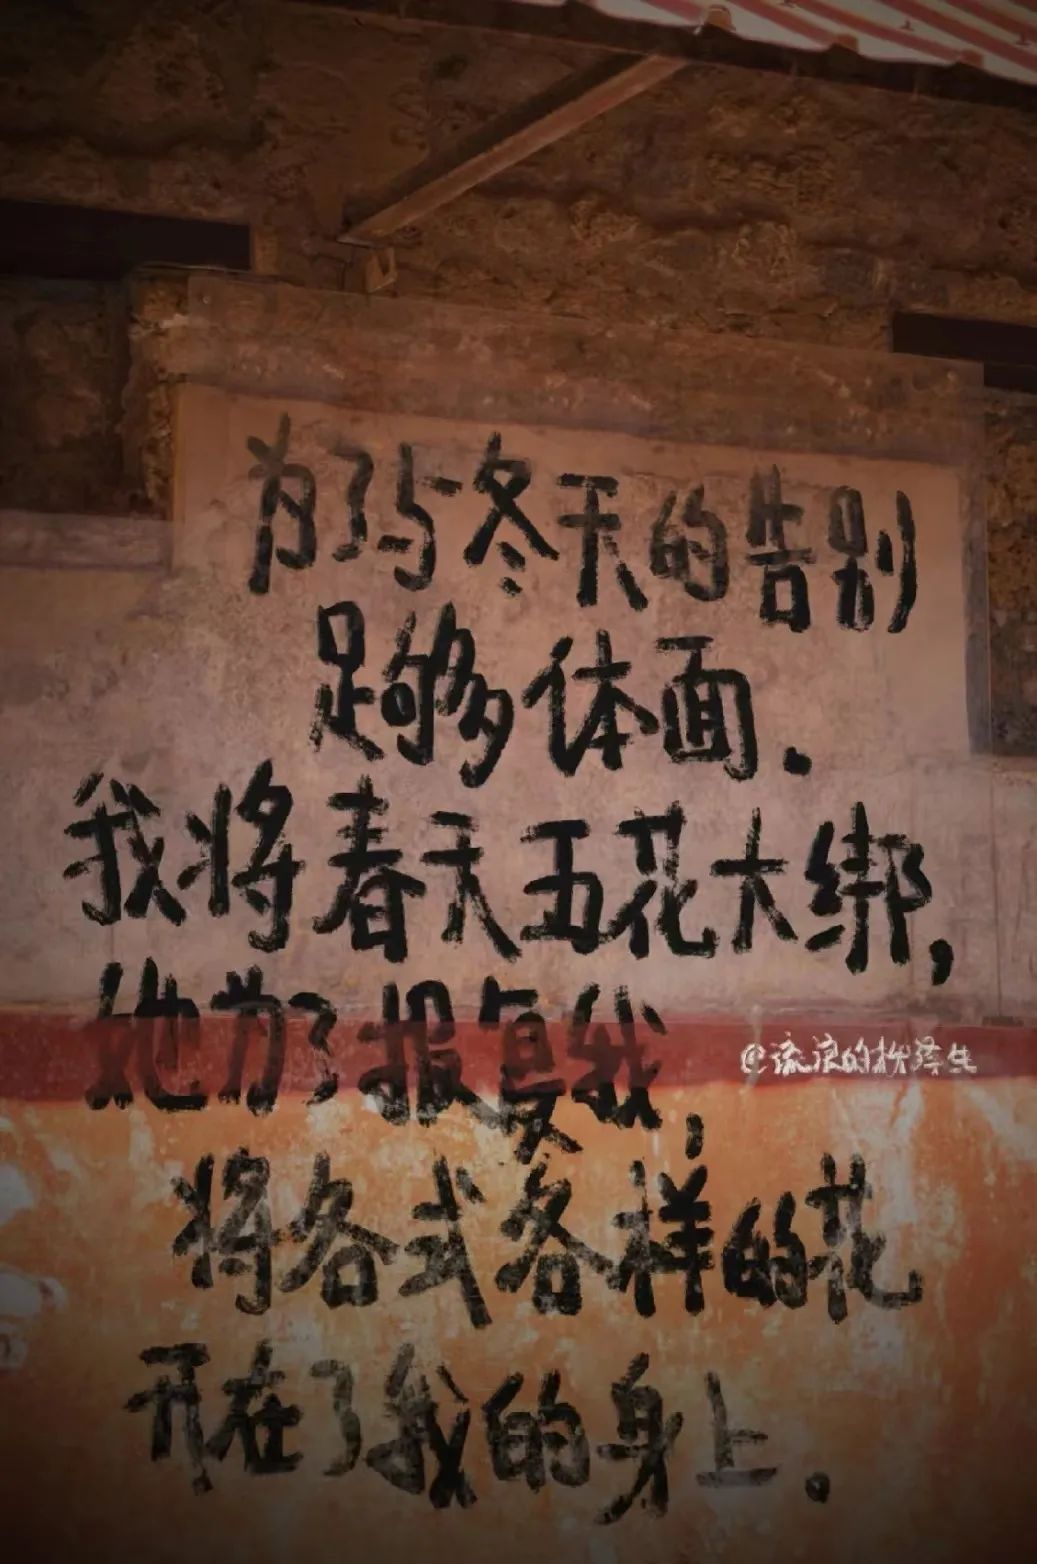 为了与冬天的告别
足够体面.
我将春天五花大绑,
她为了报复我,
将各式各样的花
开在了我的身上.
@流浪的